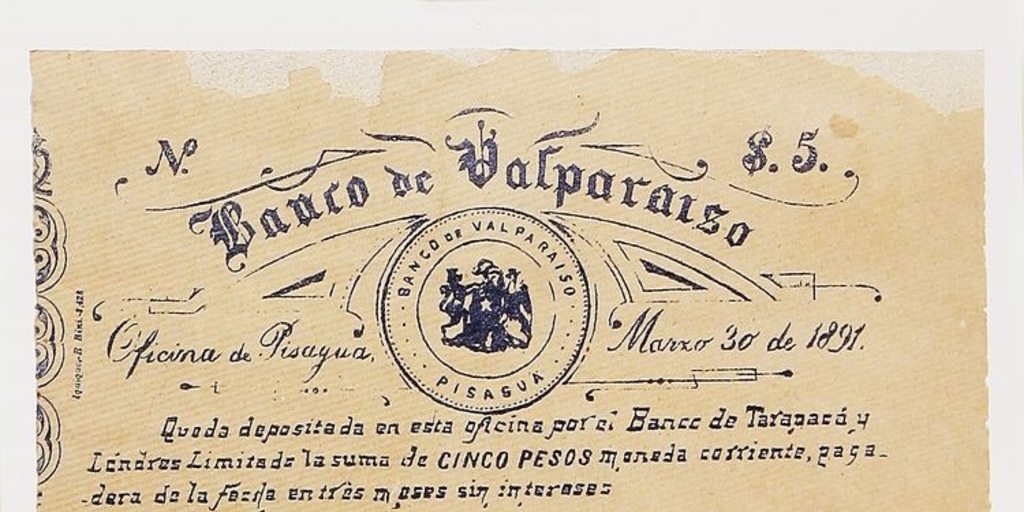 Nº $.5.
Banco de Valparaiso
BANCO DE VALPARAISO
PISAGUA
Oficina de Pisagua, Marzo 30 de 1891.
Queda depositada en esta oficina por el Banco de Tarapacá y
Lóndres Limitado la suma de CINCO PESOS moneda corriente, paga-
-dera de la fecha en três meses sin intereses
Iquique. R. Bini.